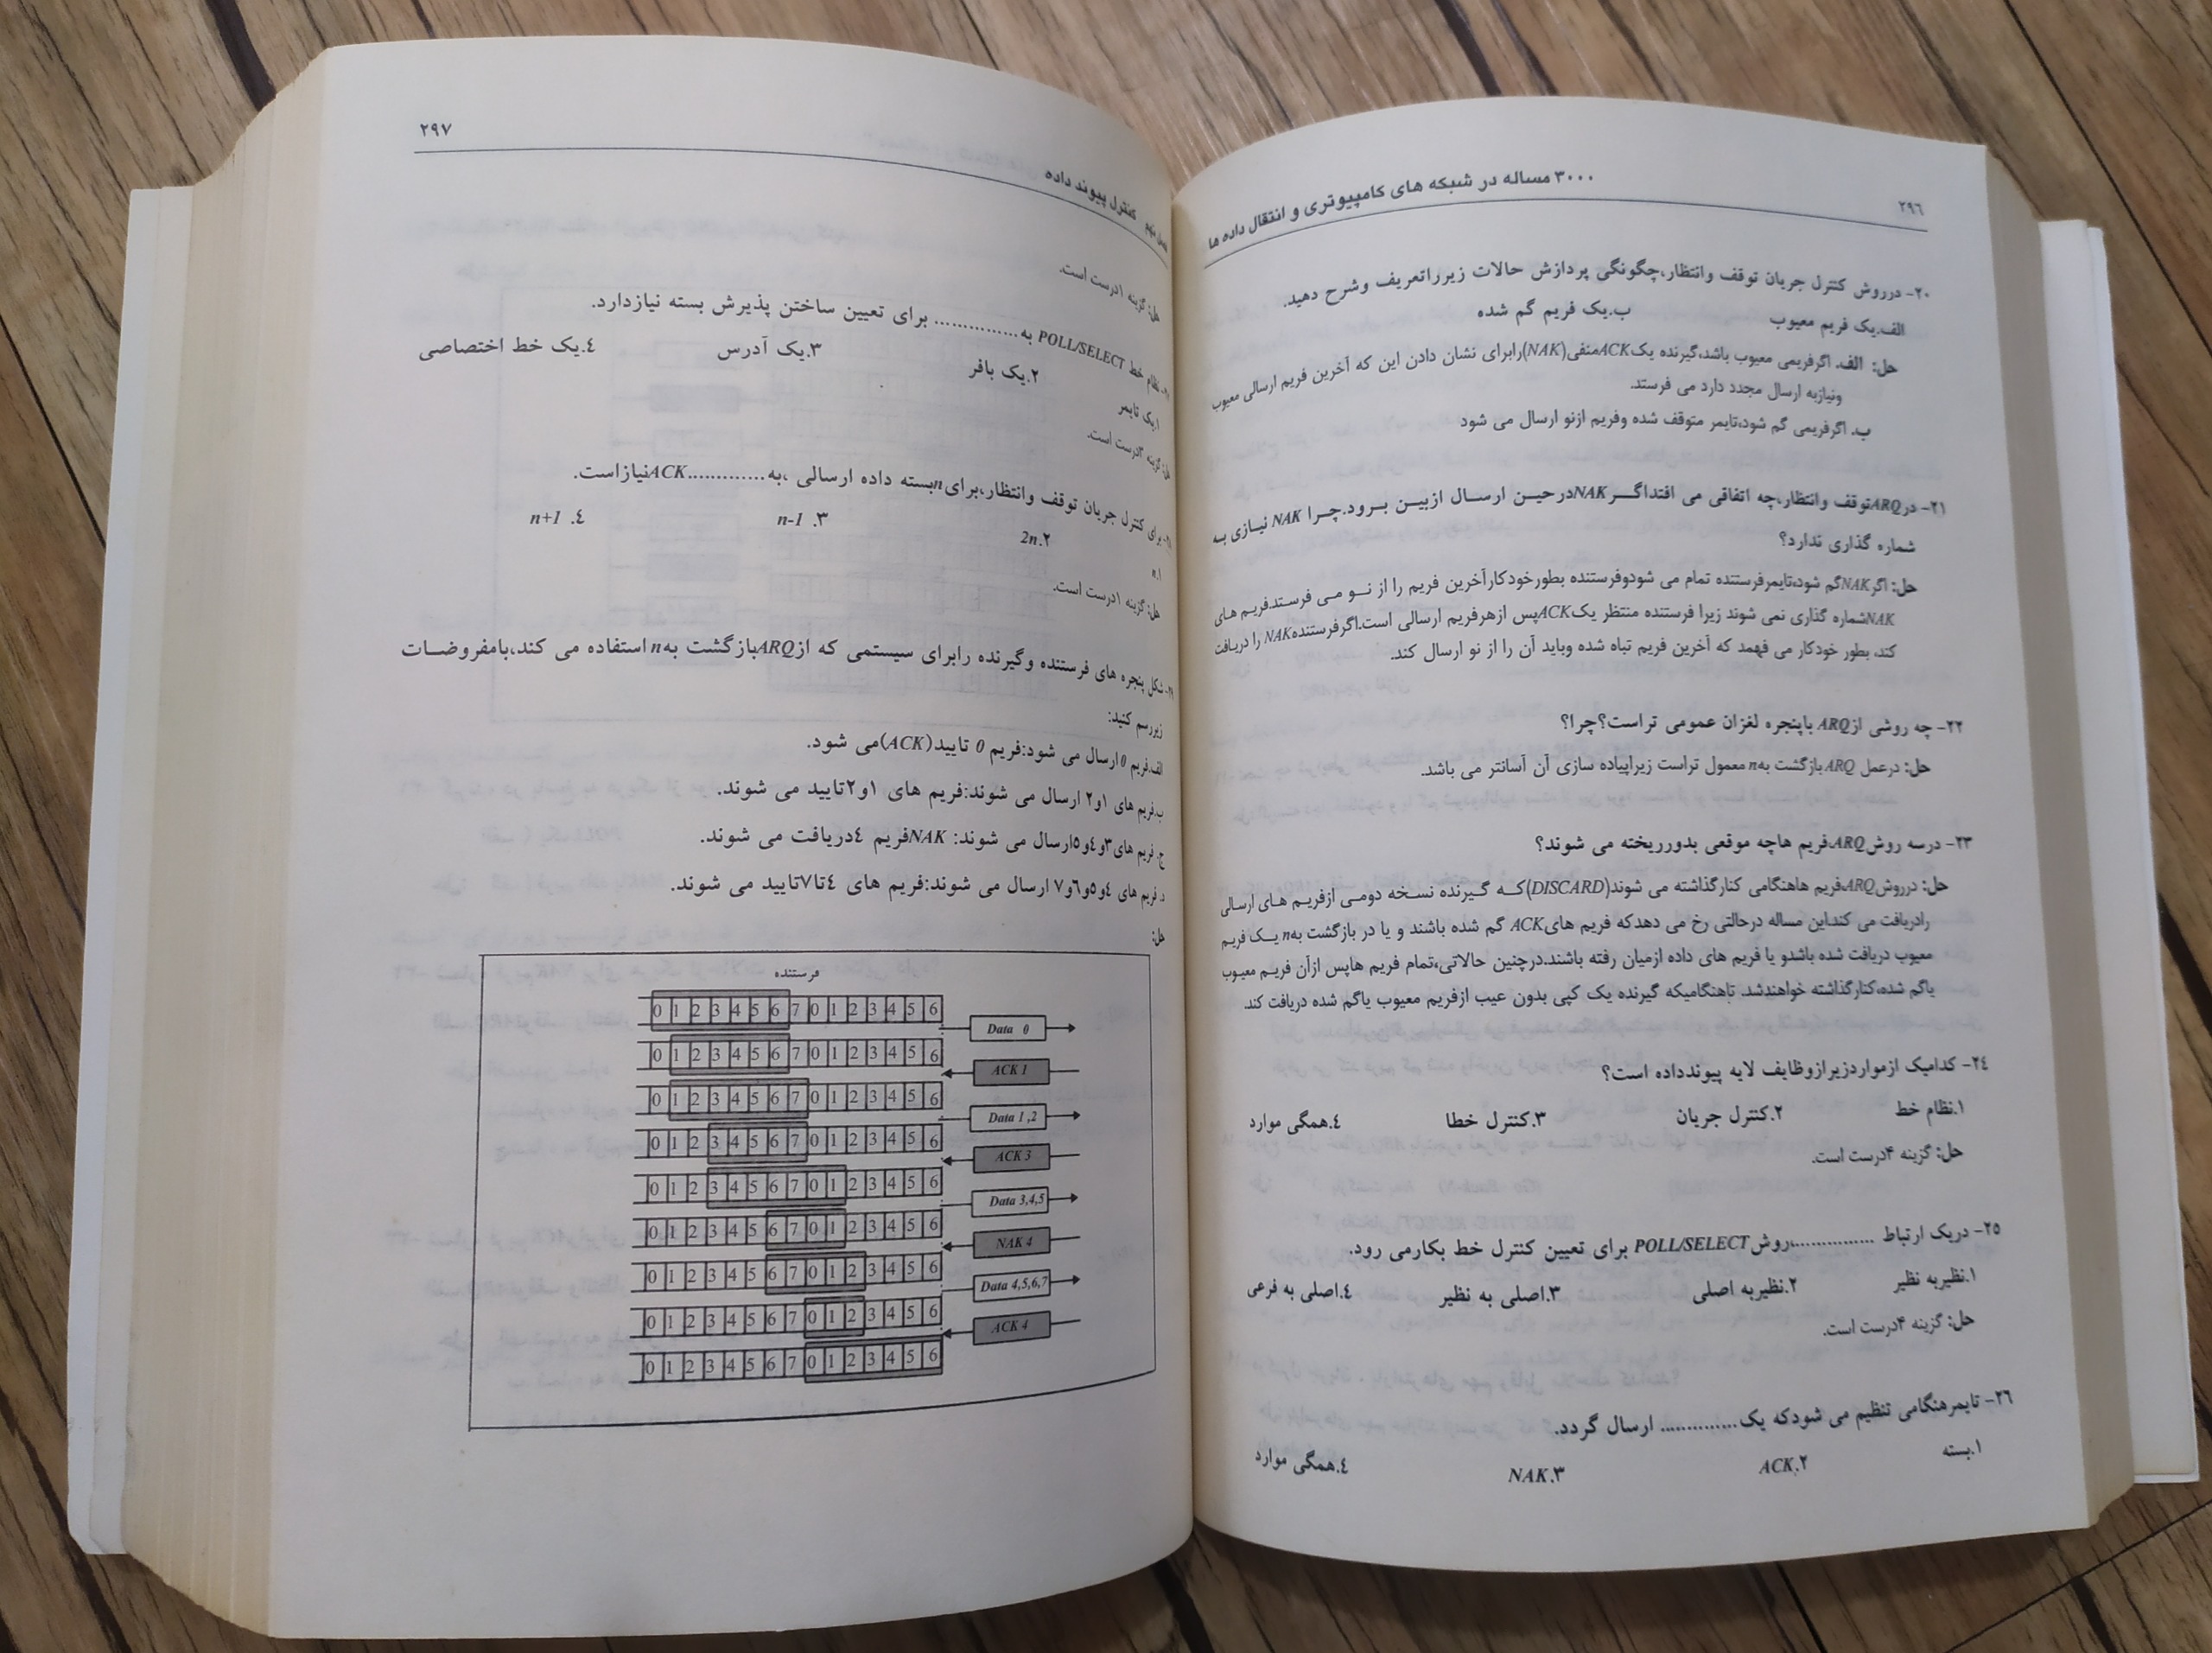 ۲۹٦
۳۰۰۰ مساله در شبکه های کامپیوتری و انتقال داده ها
۲۰- درروش کنترل جریان توقف وانتظار،چگونگی پردازش حالات زیرراتعریف وشرح دهید.
الف.یک فریم معیوب ب.یک فریم گم شده
حل: الف. اگرفریمی معیوب باشد،گیرنده یکACKمنفی(NAK)رابرای نشان دادن این که آخرین فریم ارسالی معیوب
ونیازبه ارسال مجدد دارد می فرستد.
ب. اگرفریمی گم شود،تایمر متوقف شده وفریم ازنو ارسال می شود
۲۱- درARQتوقف وانتظار،چه اتفاقی می افتداگـــرNAKدرحیـن ارســال ازبیـن بـرود.چـرا NAK نیـازی بـه
شماره گذاری ندارد؟
حل: اگرNAKگم شود،تایمرفرستنده تمام می شودوفرستنده بطورخودکارآخرین فریم را از نـو مـی فرستد.فریم های
NAKشماره گذاری نمی شوند زیرا فرستنده منتظر یکACKپس ازهرفریم ارسالی است.اگرفرستندهNAK را دریافت
کند، بطور خودکار می فهمد که آخرین فریم تباه شده وباید آن را از نو ارسال کند.
۲۲- چه روشی ازARQ باپنجره لغزان عمومی تراست؟چرا؟
حل: درعمل ARQبازگشت بهnمعمول تراست زیراپیاده سازی آن آسانتر می باشد.
۲۳- درسه روشARQ،فریم هاچه موقعی بدورریخته می شوند؟
حل: درروشARQ،فریم هاهنگامی کنارگذاشته می شوند(DISCARD)کـه گـیرنده نسـخه دومـی ازفریـم هـای ارسالی
رادریافت می کند.این مساله درحالتی رخ می دهدکه فریم هایACK گم شده باشند و یا در بازگشت بهn یـک فریم
معیوب دریافت شده باشدو یا فریم های داده ازمیان رفته باشند.درچنین حالاتی،تمام فریم هاپس ازآن فریـم معیوب
یاگم شده،کنارگذاشته خواهندشد. تاهنگامیکه گیرنده یک کپی بدون عیب ازفریم معیوب یاگم شده دریافت کند.
۲٤- کدامیک ازمواردزیرازوظایف لایه پیوندداده است؟
۱.نظام خط ۲.کنترل جریان ۳.کنترل خطا ٤.همگی موارد
حل: گزینه ۴درست است.
۲٥- دریک ارتباط ...............،روشPOLL/SELECT برای تعیین کنترل خط بکارمی رود.
۱.نظیربه نظیر ۲.نظیربه اصلی ۳.اصلی به نظیر ٤.اصلی به فرعی
حل: گزینه ۴درست است.
۲٦- تایمرهنگامی تنظیم می شودکه یک.............. ارسال گردد.
۱.بسته ۲.ACK ۳.NAK ٤.همگی موارد
۲۹۷
کنترل پیوند داده
حل: گزینه ۱درست است.
نظام خط POLL/SELECT به............... برای تعیین ساختن پذیرش بسته نیازدارد.
۱.یک تایمر ۲.یک بافر ۳.یک آدرس ٤.یک خط اختصاصی
حل: گزینه ۳درست است.
برای کنترل جریان توقف وانتظار،برایnبسته داده ارسالی ،به.............ACKنیازاست.
۱.n ۲.2n ۳. n-1 ٤. n+1
حل: گزینه ۱درست است.
شکل پنجره های فرستنده وگیرنده رابرای سیستمی که ازARQبازگشت بهn استفاده می کند،بامفروضـات
زیررسم کنید:
الف.فریم 0 ارسال می شود:فریم 0 تایید(ACK)می شود.
ب.فریم های ۱و۲ ارسال می شوند:فریم های ۱و۲تایید می شوند.
ج. فریم های۳و٤و٥ارسال می شوند: NAKفریم ٤دریافت می شوند.
د. فریم های ٤و٥و٦و۷ ارسال می شوند:فریم های ٤تا۷تایید می شوند.
حل:
فرستنده
0 1 2 3 4 5 6 7 0 1 2 3 4 5 6
Data 0
0 1 2 3 4 5 6 7 0 1 2 3 4 5 6
ACK 1
0 1 2 3 4 5 6 7 0 1 2 3 4 5 6
Data 1 ,2
0 1 2 3 4 5 6 7 0 1 2 3 4 5 6
ACK 3
0 1 2 3 4 5 6 7 0 1 2 3 4 5 6
Data 3,4,5
0 1 2 3 4 5 6 7 0 1 2 3 4 5 6
NAK 4
0 1 2 3 4 5 6 7 0 1 2 3 4 5 6
Data 4,5,6,7
0 1 2 3 4 5 6 7 0 1 2 3 4 5 6
ACK 4
0 1 2 3 4 5 6 7 0 1 2 3 4 5 6